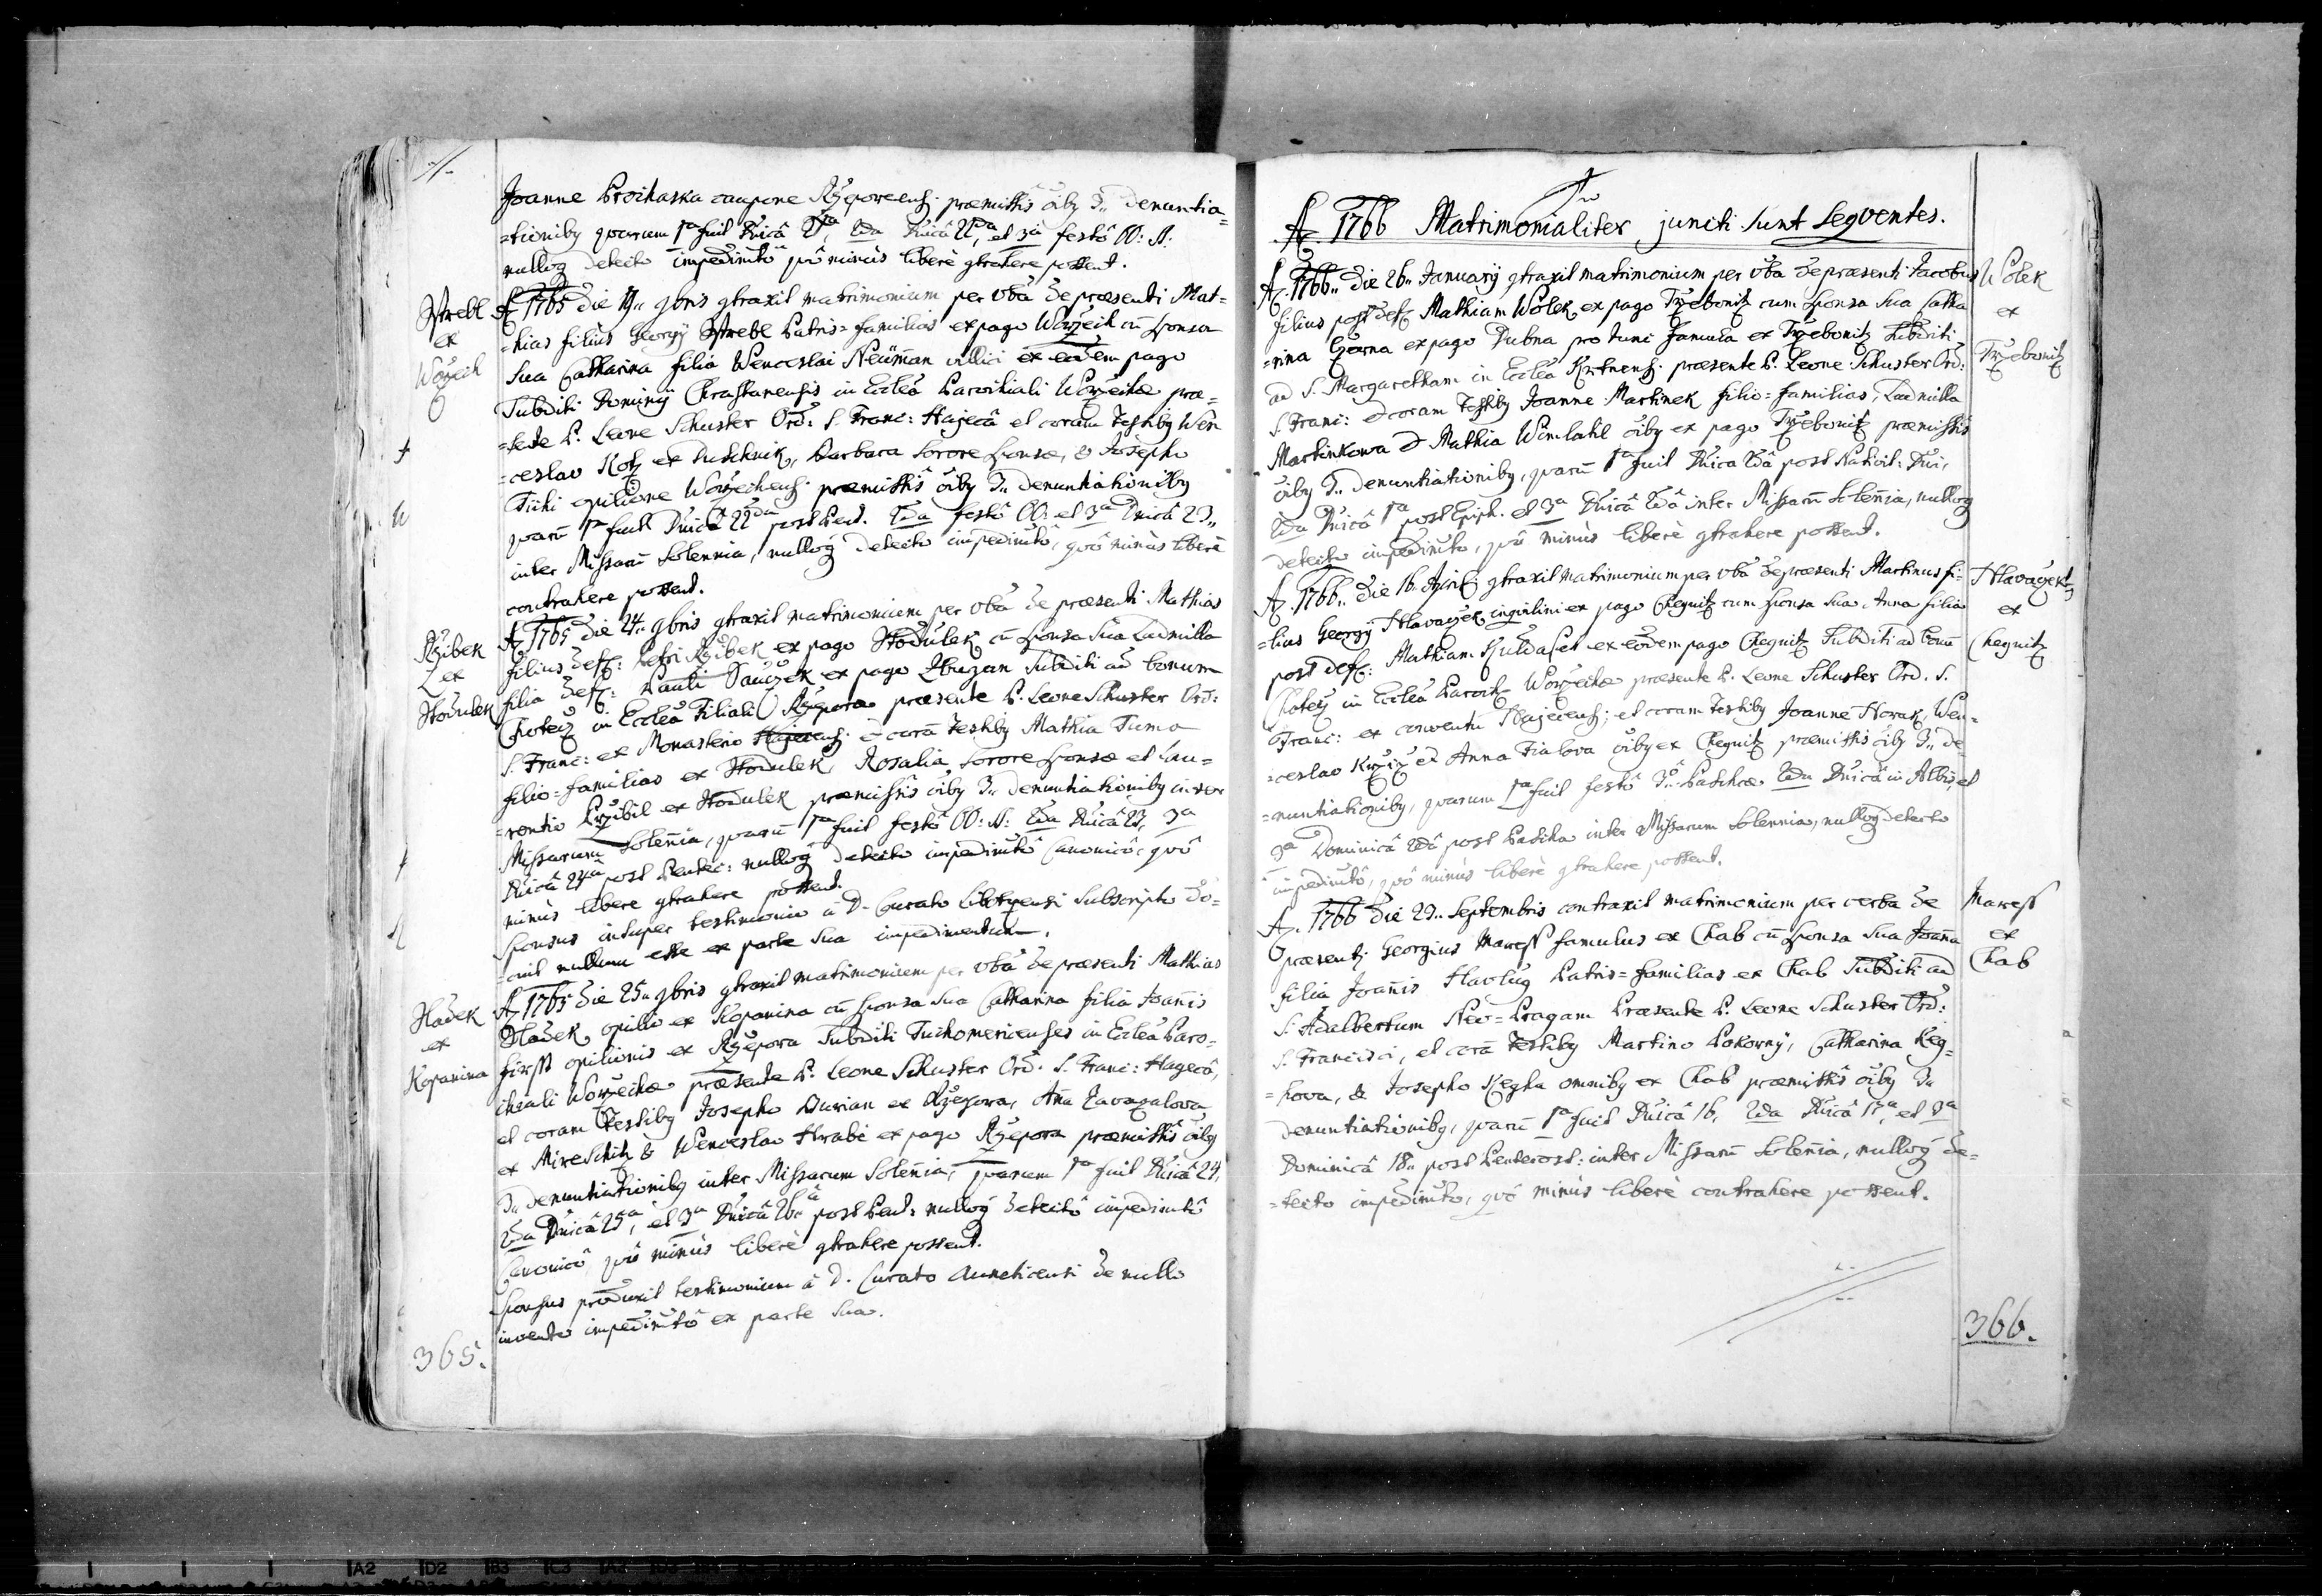 Joanne Prochaska caupone Rzeporens. præmissis õiby 3. denuntia=
=tioniby quarum 1ma fuit Dnicâ 21ma, 2da Dnicâ 22da, et 3a festô OO: SS:
nulloq detecto impedimtô quô minùs liberè gtrahere possent.
Strebl
ex
Worzech
A. 1765 die 19. 9bris gtraxit matrimonium per vba de præsenti Mat=
=hias filius Georgij Strebl Patris=familias ex pago Worzech cu sponsa
sua Catharina filia Wenceslai Neuman villici ex eodem pago
Subditi Dominij Chrastanensis in Ecclea Parochiali Worzecha præ=
=sente P. Leone Schuster Ord: S. Franc: Hajecâ et coram testiby Wen
=ceslao Kotz ex Duschnik, Barbara sorore sponsæ, & Josepho
Tichi opilione Worzechens. præmissis õiby 3. denuntiationiby
quaru 1ma fuit Dnicâ 22da post Pent. 2da festô OO: et 3a Dnicâ 23.
inter Missaru Solennia, nulloq detecto impedimtô, quô minùs liberè
contrahere possent.
Rzibek
ex
Stodulek
A. 1765 die 24. 9bris gtraxit matrimonium per vba de præsenti Mathias
filius def: Petri Rzibek ex pago Stodulek cu sponsa sua Ludmilla
filia def: Pauli Sauczek ex pago Zbuzan Subditi ad bonum
Chotecz in Ecclea Filiali Rzepora præsente P. Leone Schuster Ord:
S. Franc: ex Monasterio Hajecens. & cora testiby Mathia Tuma
filio=familias ex Stodulek, Rosalia sorore sponsæ et Lau=
=rentio Przibil ex Stodulek præmissis õiby 3. denuntiationiby inter
Missarum Solenia, quaru 1ma fuit festô OO: SS: 2da Dnicâ 23, 3a
Dnicâ 24ta post Pentec: nulloq detecto impedimtô Canonicô, quô
minùs libere gtrahere possent.
Sponsus insuper testimonio à D. Curato subscripto do=
=cuit nullum esse ex parte sua impedimentum.
Hadek
ex
Kopanina
A. 1765 die 25. 9bris gtraxit matrimonium per vba de præsenti Mathias
Hadek opilio ex Kopanina cu sponsa sua Catharina filia Joannis
First opilionis ex Rzepora Subditi Tuchomericenses in Ecclea Paro=
chiali Worzecha præsente P. Leone Schuster Ord. S. Franc: Hagecâ,
et coram testiby Josepho Durian ex Rzepora, Ana Zavazalova
ex Mireschitz & Wenceslao Hrabe ex pago Rzepora præmissis õiby
3. denuntiationiby inter Missarum Solenia, quarum 1ma fuit Dnicâ 24,
2da Dnicâ 25a, et 3a Dnicâ 26a post Pent: nulloq detectô impedimtô
Canonicô, quô minùs liberè gtrahere possent.
Sponsus produxit testimonium à D. Curato Auneticensi de nullo
invento impedimtô ex parte sua.
365.
A. 1766 Matrimonialiter juncti sunt Seqventes.
A. 1766. die 26. January gtraxit matrimonium per vba de præsenti Jacobus
filius post def: Mathiam Wolek ex pago Trzebonitz cum sponsa sua Catha
=rina Czerna ex pago Dubna pro tunc famula ex Trzebonitz Subditi
ad S. Margaretham in Ecclea Krtnens. præsente P. Leone Schuster Ord:
S. Franc: & coram testiby Joanne Martinek filio=familias, Ludmilla
Martinkowa & Mathia õiby ex pago Trzebonitz præmissis
õiby 3. denuntiationiby, quaru 1ma fuit Dnica 2dâ post Nativit: Dni,
2da Dnicâ 1ma post Epiph. et 3a Dnicâ 2dâ inter Missaru Solenia, nulloq
detecto impedimto, quô minùs liberè gtrahere possent.
Wolek
ex
Trzebonitz
A. 1766. die 16. April. gtraxit matrimonium per vba de præsenti Martinus fi=
=lius Georgij Hlavaczek inquilini ex pago Chegnitz cum sponsa sua Anna filia
post def: Mathiam Kuldasch ex eodem pago Chegnitz Subditi ad bonu
Chotecz in Ecclea Paroch. Worzecha præsente P. Leone Schuster Ord. S.
Franc: ex conventu Hajecens; et coram testiby Joanne Novak, Wen=
=ceslao Krziz et Anna Fialova õiby ex Chegnitz præmissis õiby 3. de=
=nuntiationiby, quarum 1ma fuit festô 3. Paschæ 2da Dnicâ in Albis, et
3a Dominicâ 2dâ post Pascha inter Missarum Solennia, nulloq detecto
impedimtô, quô minùs liberè gtrahere possent.
Hlavaczek
ex
Chegnitz
A. 1766 die 23. Septembris contraxit matrimonium per verba de
præsenti Georgius Maress famulus ex Chab cu sponsa sua Joanna
filia Joannis Havlug Patris=familias ex Chab Subditi ad
S. Adalbertum Neo=Pragam Præsente P. Leone Schuster Ord:
S. Francisci, et cora testiby Martino Pokorny, Catharina Keg=
=hova, & Josepho Kegha omniby ex Chab præmissis õiby 3.
denuntiationiby, quaru 1ma fuit Dnicâ 16, 2da Dnicâ 17a et 3a
Dominicâ 18. post Pentecost: inter Missaru Solenia, nulloq de=
=tecto impedimto, quô minùs liberè contrahere possent.
Maress
ex
Chab
366.